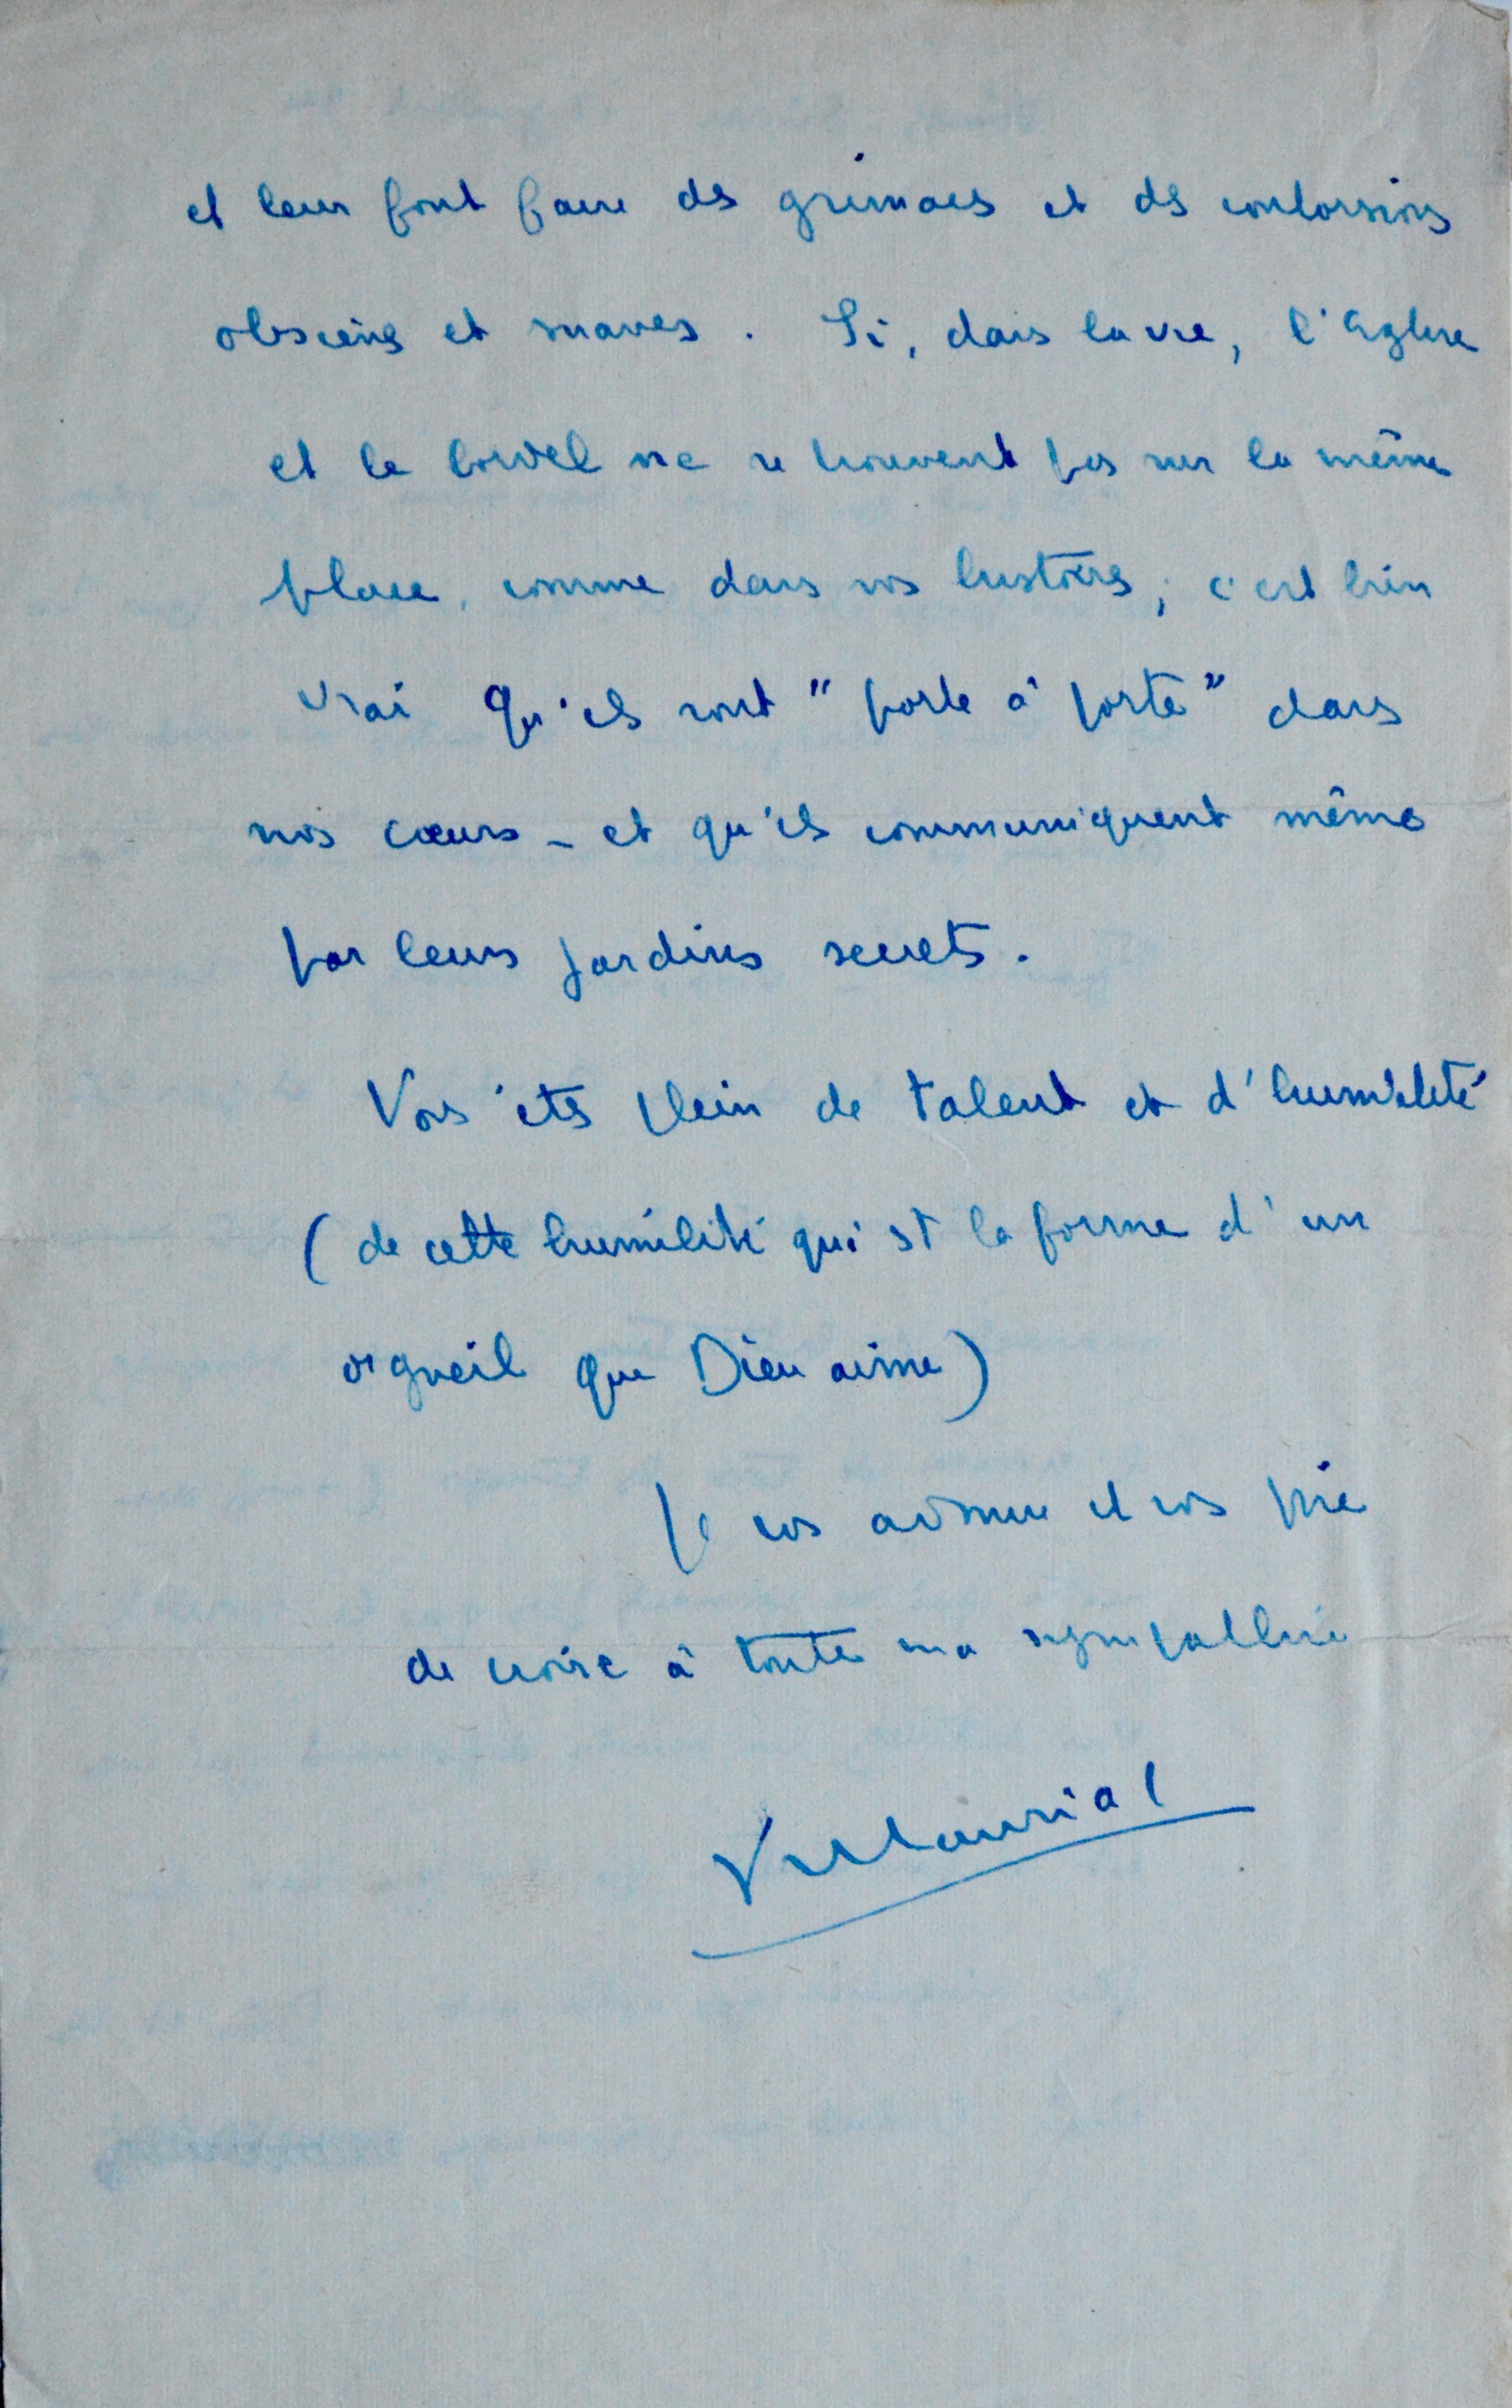 et leur font faire des grimaces et des contorsions
obscènes et suaves. Si, dans la vie, l'église
et le bordel ne se trouvent pas sur la même
place, comme dans vos histoires, c'est bien
vrai qu'ils sont "porte à porte" dans
nos cœurs - et qu'ils communiquent même
par leurs jardins secrets.
Vous êtes plein de talent et d'humilité
(de cette humilité qui est la forme d'un
orgueil que Dieu aime)
Je vous admire et vous prie
de croire à toute ma sympathie